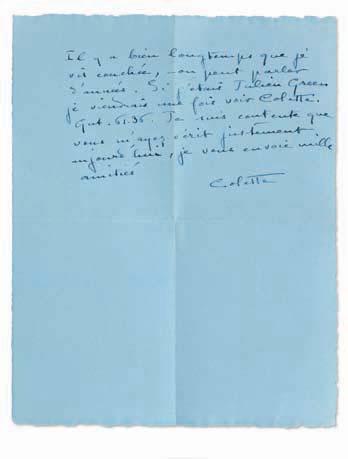 Il y a bien longtemps que je
vis couchée, – on peut parler
d'années. Si j'étais Julien Green
je viendrais une fois voir Colette.
Gut. 61.36. Je suis contente que
vous m'ayez écrit justement
aujourd'hui, je vous envoie mille
amitiés
Colette